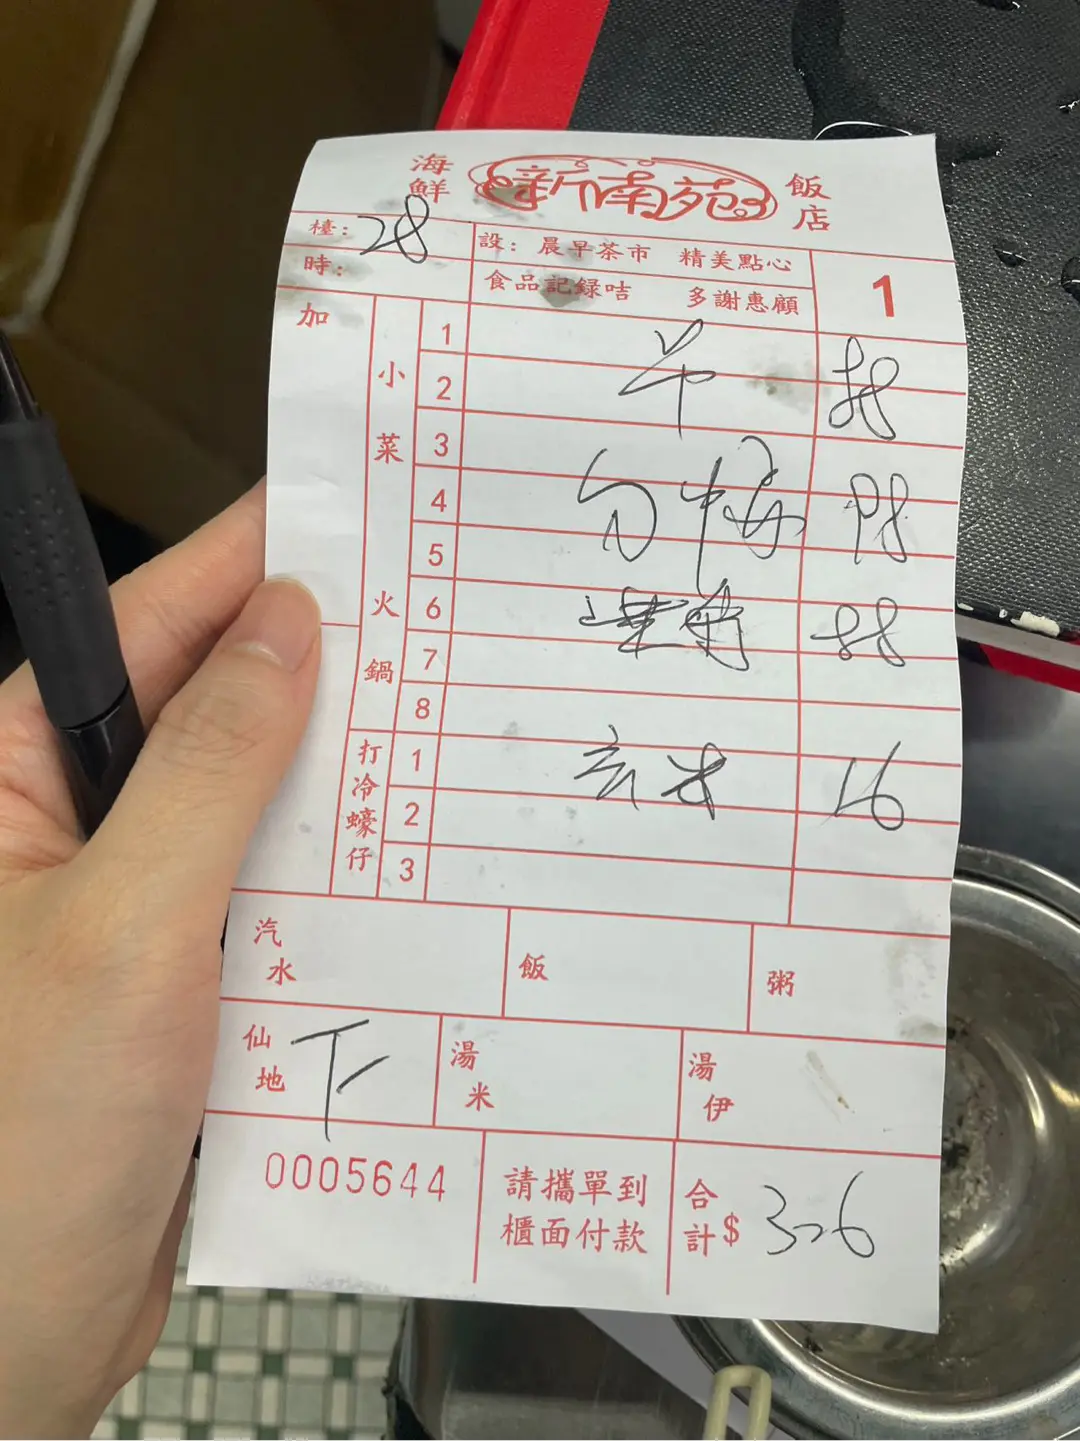 海鮮 新南苑 飯店
檯: 28
時:
設: 晨早茶市 精美點心
食品記録咭 多謝惠顧
1
加
小菜 火鍋
1
2
3
4
5
6
7
8
打冷蠔仔
1
2
3
98
16
汽水
飯
粥
仙地 下
湯米
湯伊
0005644
請攜單到
櫃面付款
合計$ 326